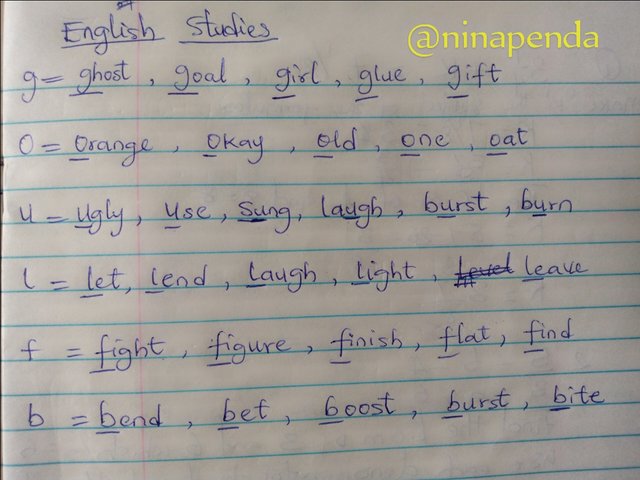 English Studies
@ninapenda
g = ghost, goal, girl, glue, gift
O = Orange, Okay, Old, One, Oat
u = Ugly, Use, Sung, laugh, burst, burn
l = Let, Lend, Laugh, Light, Level Leave
f = fight, figure, finish, flat, find
b = bend, bet, boost, burst, bite